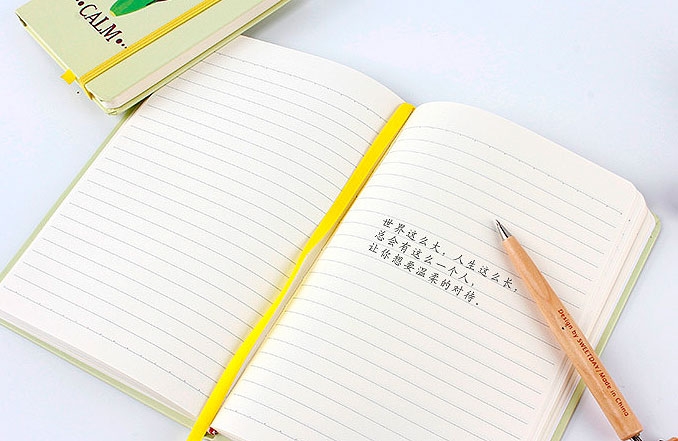 CALM
世界这么大，人生这么长，
总会有这么一个人，
让你想要温柔的对待。
Design by SWEETDAY / Made in China